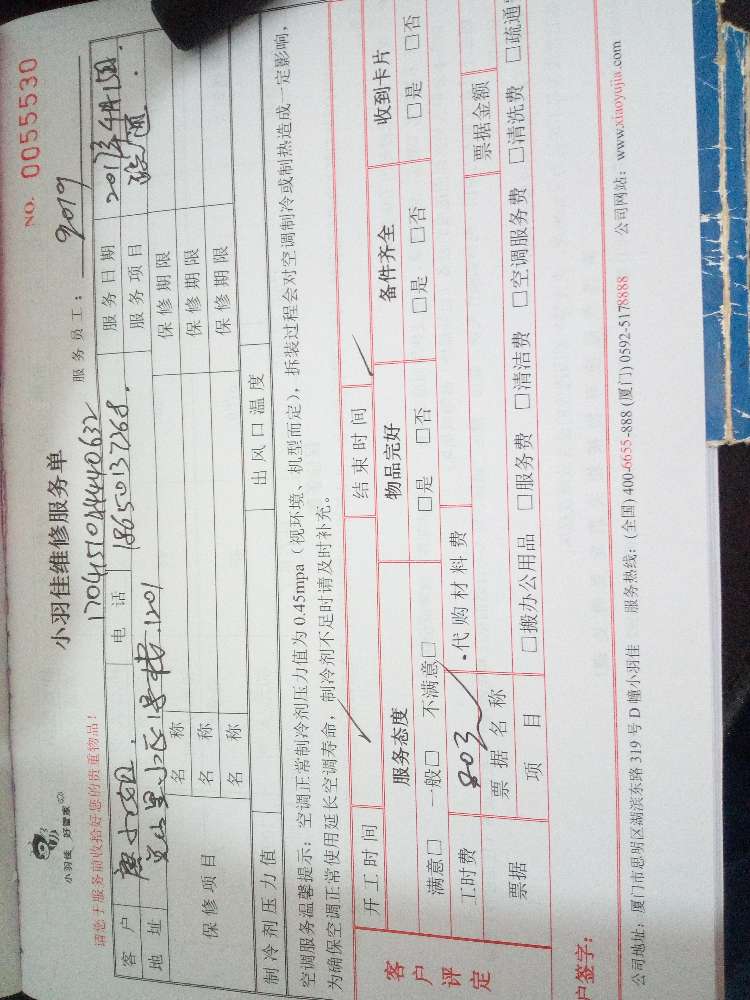 小羽佳 好管家
小羽佳维修服务单
NO. 0055530
请您于服务前收拾好您的贵重物品!
17041510444440632
服务员工: 9019
客户
电话 18650137268.
服务日期 2017年4月15日
地址 小区1号楼.1201
服务项目
保修项目
名称
保修期限
名称
保修期限
名称
保修期限
制冷剂压力值
出风口温度
空调服务温馨提示:空调正常制冷剂压力值为0.45mpa(视环境、机型而定),拆装过程会对空调制冷或制热造成一定影响,
为确保空调正常使用延长空调寿命,制冷剂不足时请及时补充。
开工时间
结束时间
客户评定
服务态度
物品完好
备件齐全
收到卡片
满意□ 一般□ 不满意□
□是 □否
□是 □否
□是 □否
工时费 803
代购材料费
票据
票据名称
票据金额
项目
□搬办公用品 □服务费 □清洁费 □空调服务费 □清洗费 □疏通
户签字:
公司地址:厦门市思明区湖滨东路319号D幢小羽佳 服务热线:(全国)400-6655-888 (厦门)0592-5178888 公司网站:www.xiaoyujia.com